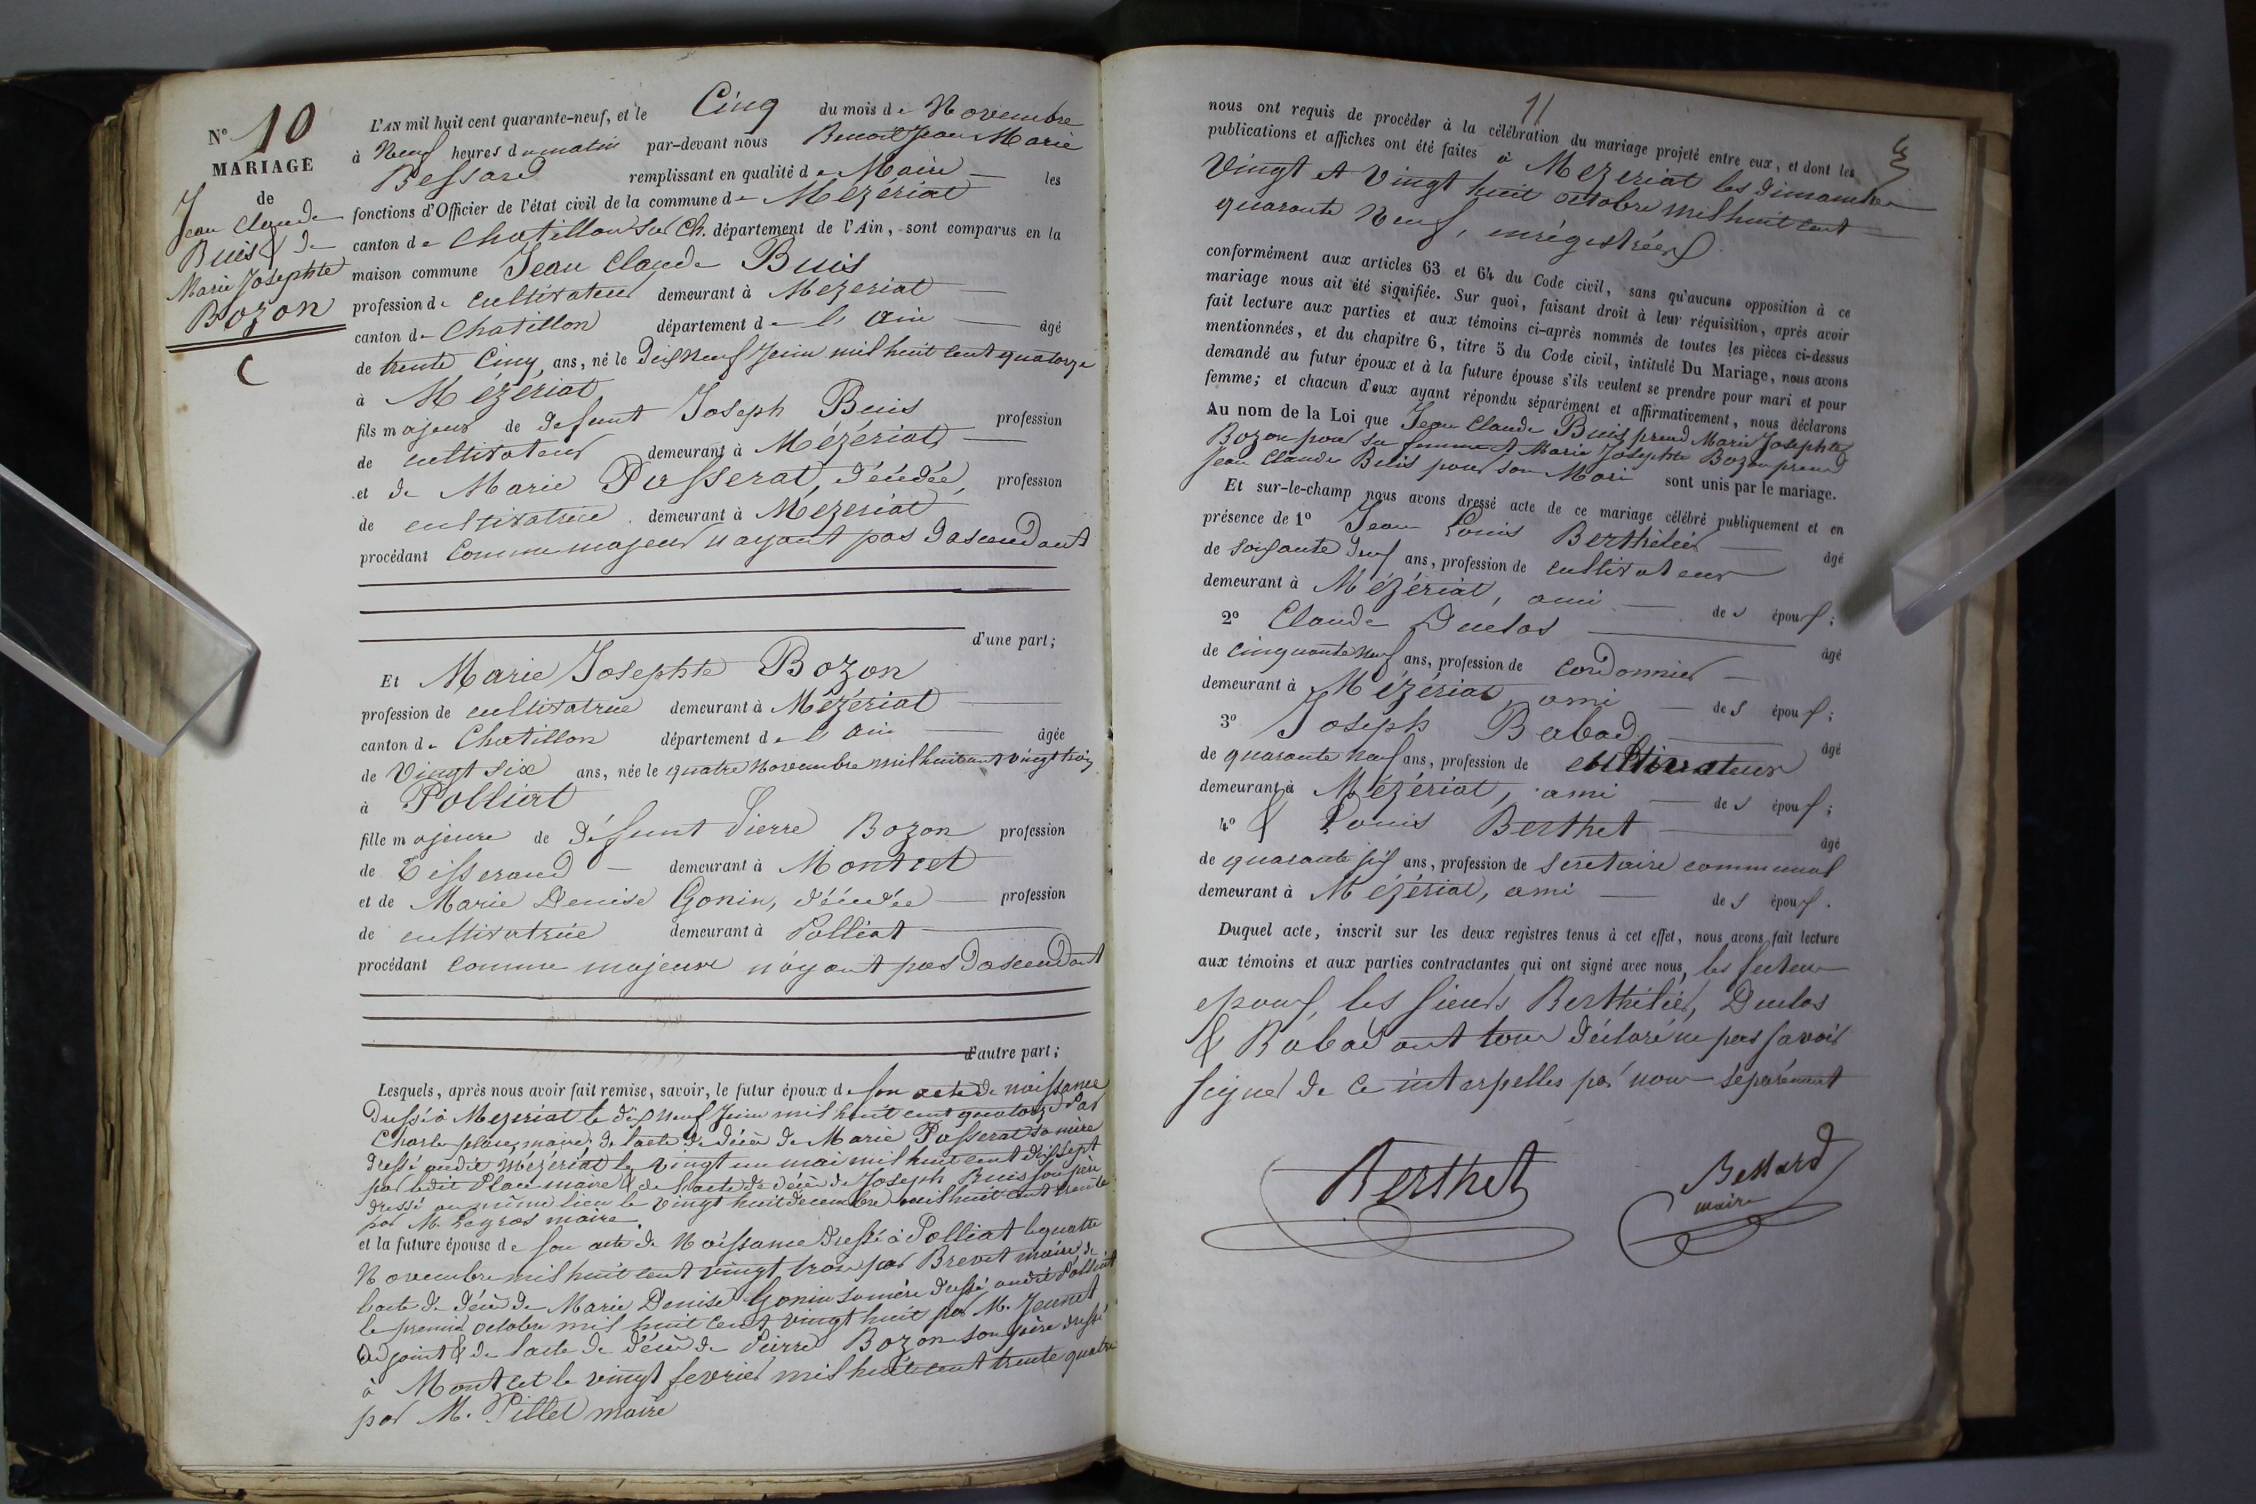 N° 10
MARIAGE
de
Jean Claude
Buis & de
Marie Josephte
Bozon
C
L'AN mil huit cent quarante-neuf, et le Cinq du mois de Novembre
à Neuf heures du matin par-devant nous Benoit Jean Marie
Bessard remplissant en qualité de Maire les
fonctions d'Officier de l'état civil de la commune de Mézériat
canton de Chatillon sur Ch. département de l'Ain, sont comparus en la
maison commune Jean Claude Buis
profession de cultivateur demeurant à Mézériat
canton de Chatillon département de l'Ain âgé
de trente Cinq ans, né le dix Neuf Juin mil huit cent quatorze
à Mézériat
fils majeur de defunt Joseph Buis profession
de cultivateur demeurant à Mézériat
et de Marie Passerat, décédée, profession
de cultivatrice demeurant à Mézériat
procédant comme majeur n'ayant pas d'ascendant
d'une part ;
Et Marie Josephte Bozon
profession de cultivatrice demeurant à Mézériat
canton de Chatillon département de l'Ain âgée
de Vingt six ans, née le quatre Novembre mil huit cent vingt trois
à Polliat
fille majeure de défunt Pierre Bozon profession
de Tisserand demeurant à Montcet
et de Marie Denise Gonin, décédée profession
de cultivatrice demeurant à Polliat
procédant comme majeure n'ayant pas d'ascendant
d'autre part ;
Lesquels, après nous avoir fait remise, savoir, le futur époux de son acte de naissance
dressé à Mezeriat le dix Neuf Juin mil huit cent quatorze Par
Charle place, maire; de l'acte de décès de Marie Passerat sa mère
dressé audit Mézériat le vingt un mai mil huit cent dix sept
par ledit Place maire & de l'acte de décès de Joseph Buis son père
dressé au même lieu le Vingt huit decembre mil huit cent trente
par M. Legros maire.
et la future épouse de son acte de Naissance dressé à Polliat le quatre
Novembre mil huit cent vingt trois par Brevet maire; de
l'acte de décès de Marie Denise Gonin sa mère dressé audit Polliat
le premier octobre mil huit cent vingt huit par M. Jeunet
adjoint & de l'acte de décès de Pierre Bozon son père dressé
à Montcet le vingt fevrier mil huit cent trente quatre
par M. Pillet maire
11
nous ont requis de procéder à la célébration du mariage projeté entre eux, et dont les
publications et affiches ont été faites à Mezeriat les dimanches
Vingt et Vingt huit octobre mil huit cent
quarante Neuf, enrégistrées
conformément aux articles 63 et 64 du Code civil, sans qu'aucune opposition à ce
mariage nous ait été signifiée. Sur quoi, faisant droit à leur réquisition, après avoir
fait lecture aux parties et aux témoins ci-après nommés de toutes les pièces ci-dessus
mentionnées, et du chapitre 6, titre 5 du Code civil, intitulé Du Mariage, nous avons
demandé au futur époux et à la future épouse s'ils veulent se prendre pour mari et pour
femme ; et chacun d'eux ayant répondu séparément et affirmativement, nous déclarons
Au nom de la Loi que Jean Claude Buis prend Marie Josephte
Bozon pour sa femme et Marie Josephte Bozon prend
Jean Claude Buis pour son Mari sont unis par le mariage.
Et sur-le-champ nous avons dressé acte de ce mariage célébré publiquement et en
présence de 1° Jean Louis Berthélier âgé
de soixante deux ans, profession de cultivateur
demeurant à Mézériat, ami des époux ;
2° Claude Duclos âgé
de cinquante Neuf ans, profession de cordonnier
demeurant à Mézériat, ami des époux ;
3° Joseph Babad âgé
de quarante Neuf ans, profession de cultivateur
demeurant à Mézériat, ami des époux ;
4° & Louis Berthet âgé
de quarante six ans, profession de secretaire communal
demeurant à Mézériat, ami des époux.
Duquel acte, inscrit sur les deux registres tenus à cet effet, nous avons fait lecture
aux témoins et aux parties contractantes qui ont signé avec nous, les futeur
epoux, les sieurs Berthélier, Duclos
& Babad ont tous déclaré ne pas savoir
signer de ce interpelles par nous séparément
Berthet
Bessard
maire